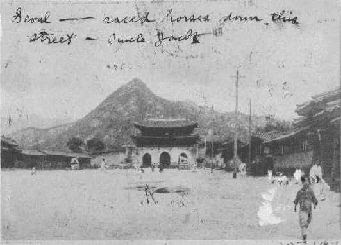 Seoul — raced horses down this
street — Uncle Jack